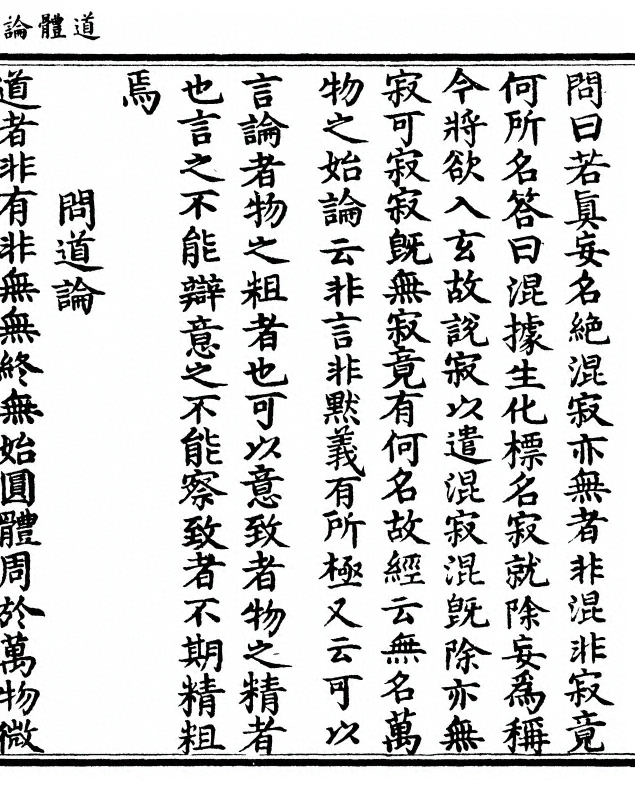 道體論
問曰若眞妄名絶混寂亦無者非混非寂竟
何所名答曰混據生化標名寂就除妄爲稱
今將欲入玄故說寂以遣混寂混既除亦無
寂可寂寂既無寂竟有何名故經云無名萬
物之始論云非言非默義有所極又云可以
言論者物之粗者也可以意致者物之精者
也言之不能辯意之不能察致者不期精粗
焉
問道論
道者非有非無無終無始圓體周於萬物微